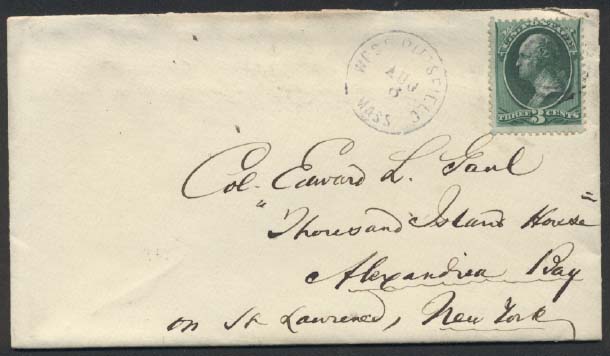 WEST
AUG
6
MASS
THREE 3 CENTS
Col. Edward L. Gaul
"Thousand Island House"
Alexandria Bay
on St Lawrence, New York